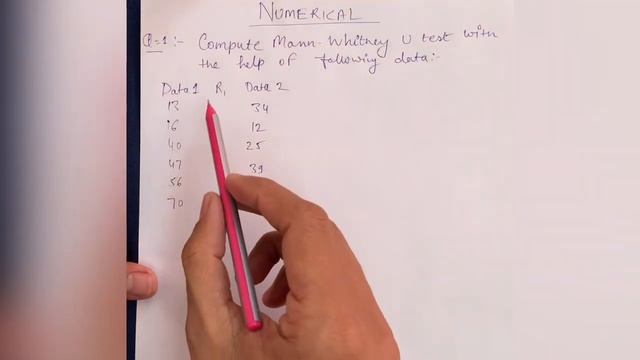 NUMERICAL
Q=1:- Compute Mann-Whitney U test with
the help of following data:-
Data 1 R₁ Data 2
13 34
16 12
40 25
47 39
56
70